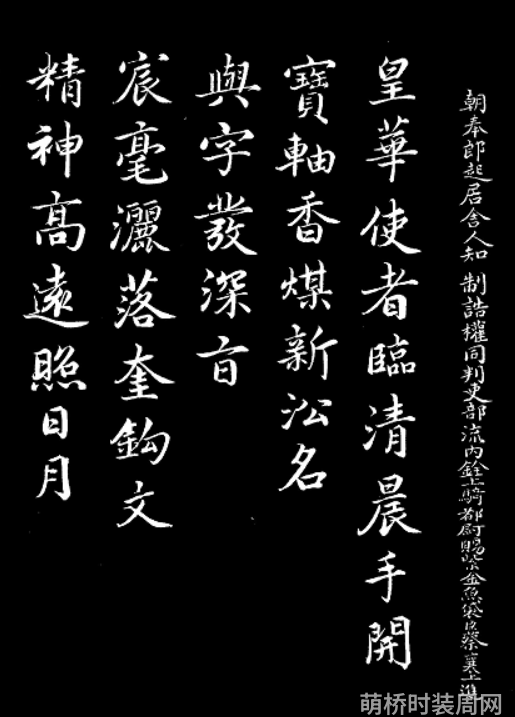 朝奉郎起居舍人知 制誥權同判吏部流内銓上騎都尉賜紫金魚袋臣蔡襄上進
皇華使者臨清晨手開
寶軸香煤新沁名
與字發深旨
宸毫灑落奎鈎文
精神高遠照日月
萌桥时装周网